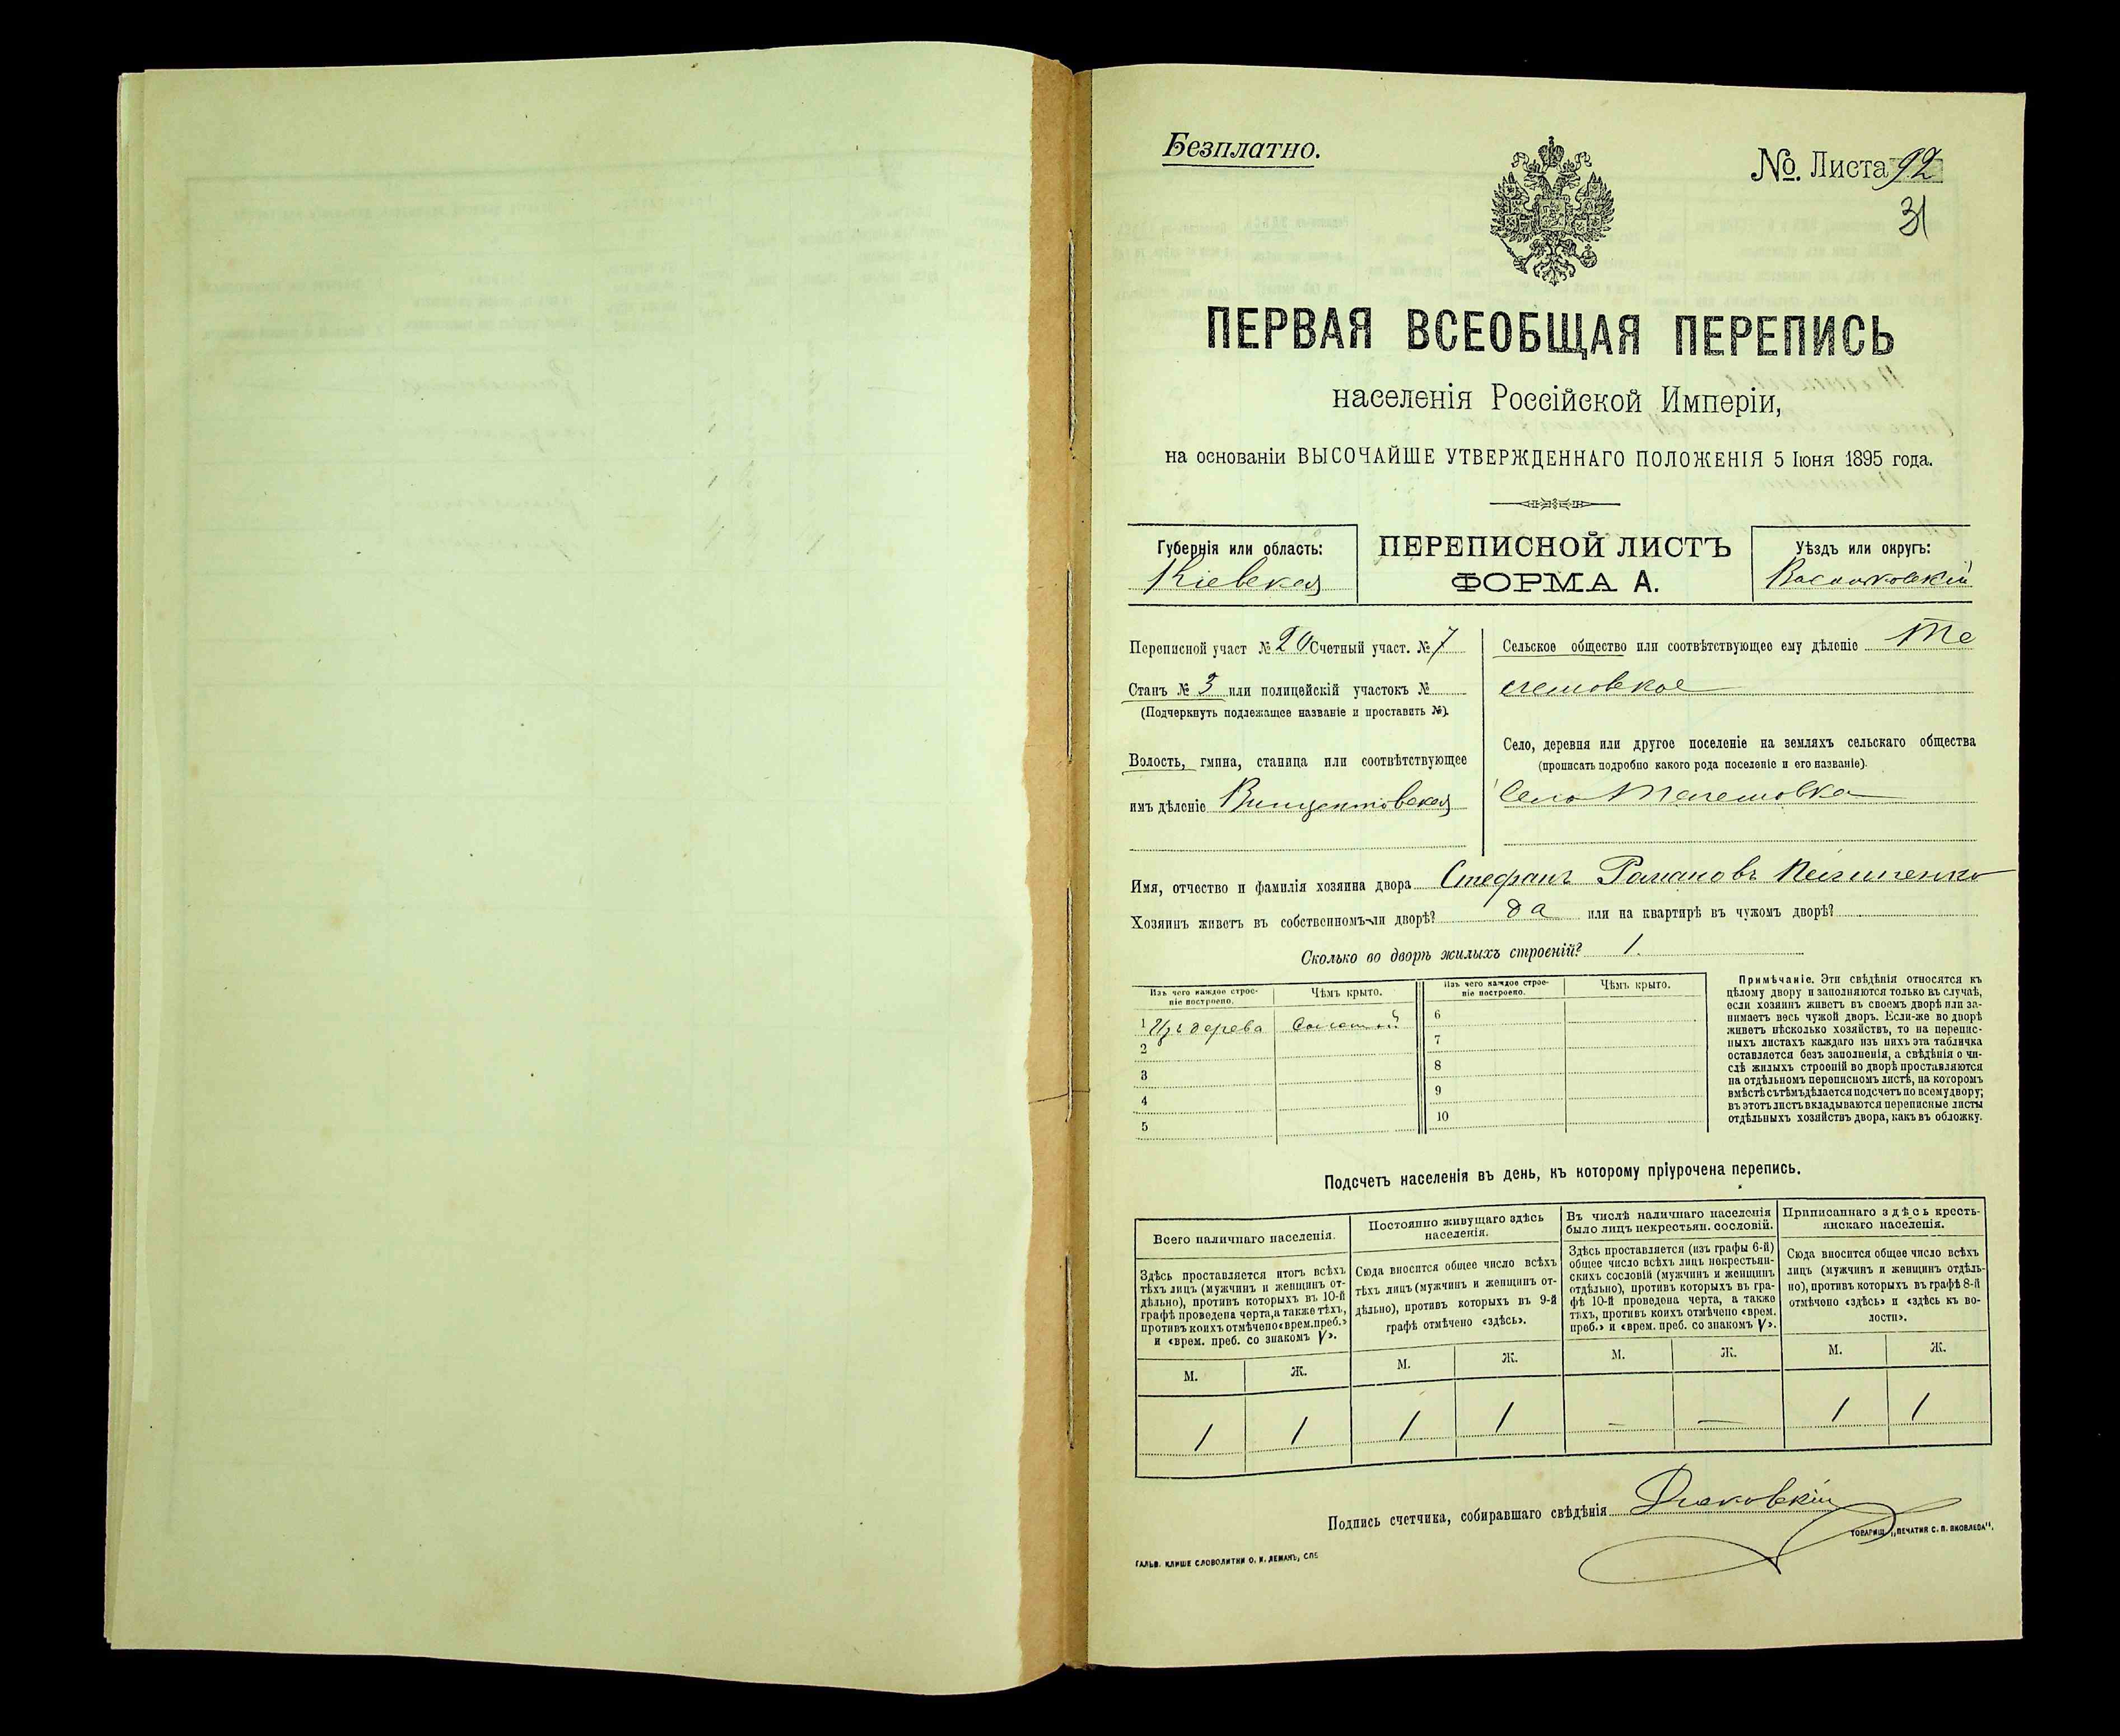 Безплатно.
№. Листа 92
31
ПЕРВАЯ ВСЕОБЩАЯ ПЕРЕПИСЬ
населенія Россійской Имперіи,
на основаніи ВЫСОЧАЙШЕ УТВЕРЖДЕННАГО ПОЛОЖЕНІЯ 5 Іюня 1895 года.
Губернія или область:
Кіевская
ПЕРЕПИСНОЙ ЛИСТЪ
ФОРМА А.
Уѣздъ или округъ:
Васильковскій
Переписной участ № 20 Счетный участ. № 7
Станъ № 3 или полицейскій участокъ №
(Подчеркнуть подлежащее названіе и проставить №).
Волость, гмина, станица или соотвѣтствующее
имъ дѣленіе Винцентовская
Сельское общество или соотвѣтствующее ему дѣленіе Те
лешовское
Село, деревня или другое поселеніе на земляхъ сельскаго общества
(прописать подробно какого рода поселеніе и его названіе).
Село Телешовка
Имя, отчество и фамилія хозяина двора Стефанъ Романовъ
Хозяинъ живетъ въ собственномъ-ли дворѣ? да или на квартирѣ въ чужомъ дворѣ?
Сколько во дворѣ жилыхъ строеній? 1.
Изъ чего каждое строе-
ніе построено.
Чѣмъ крыто.
Изъ чего каждое строе-
ніе построено.
Чѣмъ крыто.
1 Изъ дерева Соломой
2
3
4
5
6
7
8
9
10
Примѣчаніе. Эти свѣдѣнія относятся къ
цѣлому двору и заполняются только въ случаѣ,
если хозяинъ живетъ въ своемъ дворѣ или за-
нимаетъ весь чужой дворъ. Если-же во дворѣ
живетъ нѣсколько хозяйствъ, то на перепис-
ныхъ листахъ каждаго изъ нихъ эта табличка
оставляется безъ заполненія, а свѣдѣнія о чи-
слѣ жилыхъ строеній во дворѣ проставляются
на отдѣльномъ переписномъ листѣ, на которомъ
вмѣстѣ съ тѣмъ дѣлается подсчетъ по всему двору;
въ этотъ листъ вкладываются переписные листы
отдѣльныхъ хозяйствъ двора, какъ въ обложку.
Подсчетъ населенія въ день, къ которому пріурочена перепись.
Всего наличнаго населенія.
Здѣсь проставляется итогъ всѣхъ
тѣхъ лицъ (мужчинъ и женщинъ от-
дѣльно), противъ которыхъ въ 10-й
графѣ проведена черта, а также тѣхъ,
противъ коихъ отмѣчено «врем. преб.»
и «врем. преб. со знакомъ V».
Постоянно живущаго здѣсь
населенія.
Сюда вносится общее число всѣхъ
тѣхъ лицъ (мужчинъ и женщинъ от-
дѣльно), противъ которыхъ въ 9-й
графѣ отмѣчено «здѣсь».
Въ числѣ наличнаго населенія
было лицъ некрестьян. сословій.
Здѣсь проставляется (изъ графы 6-й)
общее число всѣхъ лицъ некрестьян-
скихъ сословій (мужчинъ и женщинъ
отдѣльно), противъ которыхъ въ гра-
фѣ 10-й проведена черта, а также
тѣхъ, противъ коихъ отмѣчено «врем.
преб.» и «врем. преб. со знакомъ V».
Приписаннаго здѣсь кресть-
янскаго населенія.
Сюда вносится общее число всѣхъ
лицъ (мужчинъ и женщинъ отдѣль-
но), противъ которыхъ въ графѣ 8-й
отмѣчено «здѣсь» и «здѣсь къ во-
лости».
М. Ж. М. Ж. М. Ж. М. Ж.
1 1 1 1 — — 1 1
Подпись счетчика, собиравшаго свѣдѣнія
ГАЛЬВ. КЛИШЕ СЛОВОЛИТНИ О. И. ЛЕМАНЪ, СПБ
ТОВАРИЩ. „ПЕЧАТНЯ С. П. ЯКОВЛЕВА“.